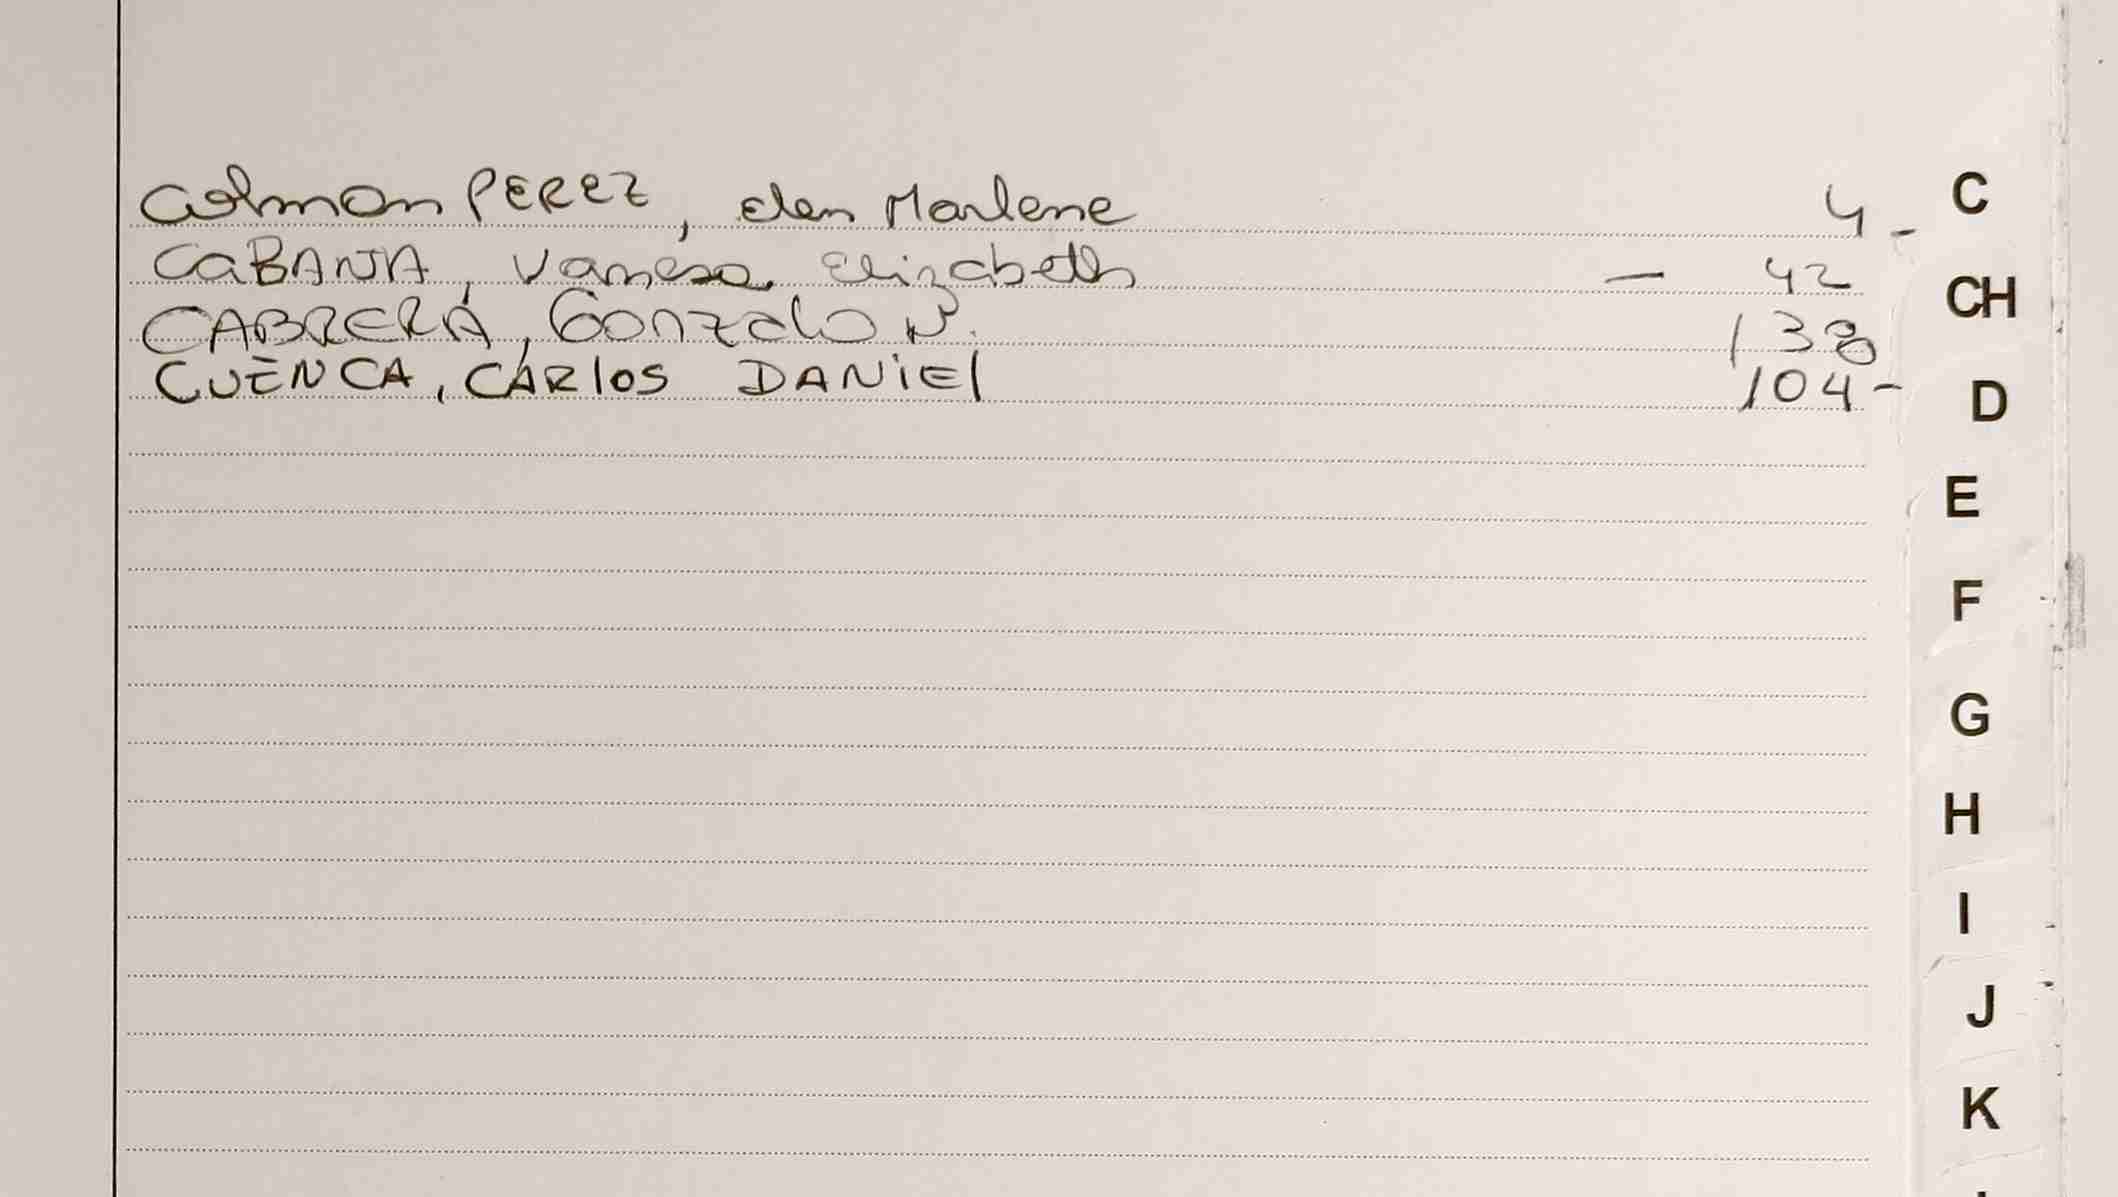 Colman PEREZ, elen Marlene 4 -
CABANJA, Vanesa Elizabeth - 42
CABRERA, Gonzalo N. 138
CUENCA, CARlos DANiEl 104 -
C
CH
D
E
F
G
H
I
J
K